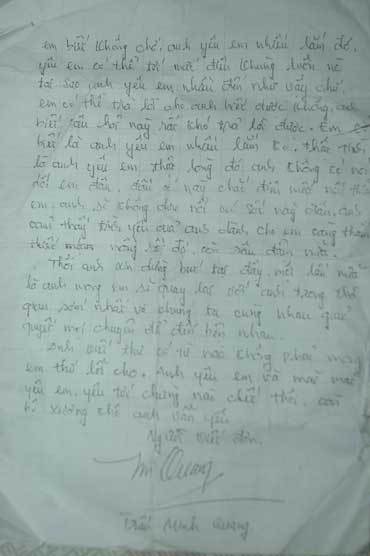 em biết không chứ, anh yêu em nhiều lắm đó,
yêu em có thể tới mức điên khùng luôn nè
tại sao anh yêu em nhiều đến như vậy chứ,
em có thể trả lời cho anh biết được không, anh
biết câu hỏi này rất khó trả lời được. Em
biết là anh yêu em nhiều lắm thật
là anh yêu em thật lòng đó anh không có nói
dối em đâu,
em, anh sẽ không chịu nổi cú sốc này đâu, anh
cảm thấy tình yêu anh dành cho em càng thêm
đó, còn sâu đậm nữa.
Thôi anh xin dừng bút tại đây, một lần nữa
là anh mong em sẽ quay lại với anh trong thời
gian sớm nhất và chúng ta cùng nhau giải
quyết mọi chuyện để đến bên nhau.
Anh viết thư có từ nào không phải mong
em thứ lỗi cho. Anh yêu em và mãi mãi
yêu em, yêu tới chừng nào chết thôi, còn
hi xương thì anh vẫn yêu
Người viết đơn.
Quang
Trần Minh Quang